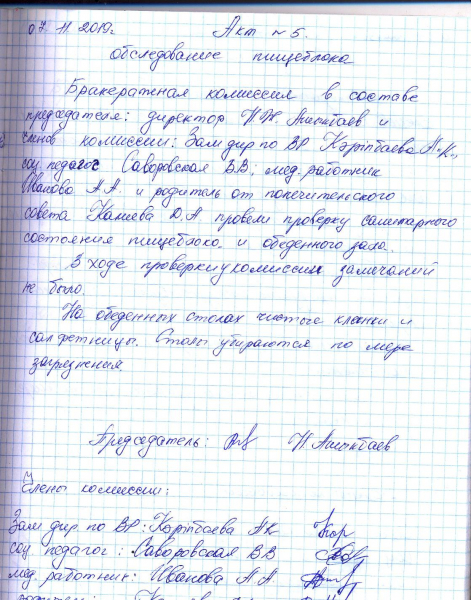 07. 11. 2019г. Акт № 5.
обследование пищеблока
Бракеражная комиссия в составе
председателя: директор Н.Ж. Ашыктаев и
членов комиссии: Зам дир по ВР Кәріпбаева А.К.,
соц педагог Саворовская В.В; мед. работник
Иванова А.А. и родитель от попечительского
совета Каниева Д.А провели проверку санитарного
состояния пищеблока и обеденного зала.
В ходе проверки у комиссии замечаний
не было.
На обеденных столах чистые клеенки и
салфетницы. Столы убираются по мере
загрязнения
Председатель: Н Ашыктаев
Члены комиссии:
Зам дир по ВР: Кәріпбаева АК
соц педагог: Саворовская В В
мед. работник: Иванова А.А.